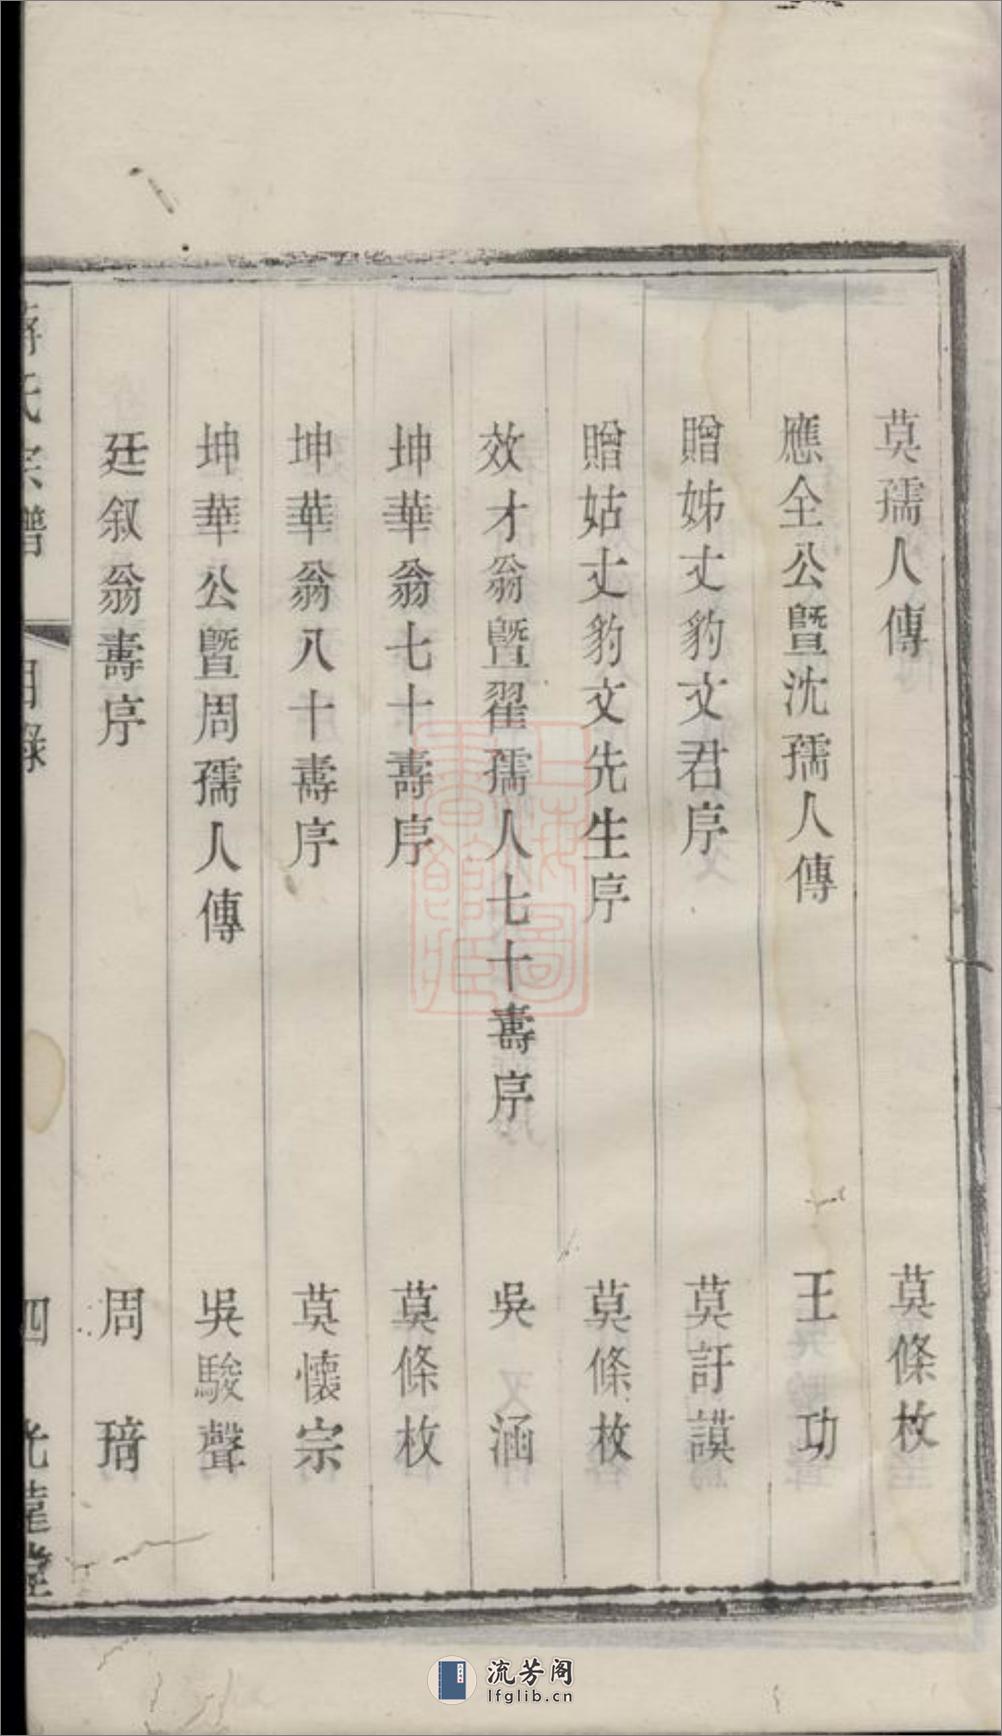 莫孺人傳 莫條枚
應全公暨沈孺人傳 王功
贈姊丈豹文君序 莫訏謨
贈姑丈豹文先生序 莫條枚
效才翁暨翟孺人七十壽序 吳涵
坤華翁七十壽序 莫條枚
坤華翁八十壽序 莫懷宗
坤華公暨周孺人傳 吳駿聲
廷叙翁壽序 周琦
蔣氏宗譜 目錄 四
流芳阁
lfglib.cn